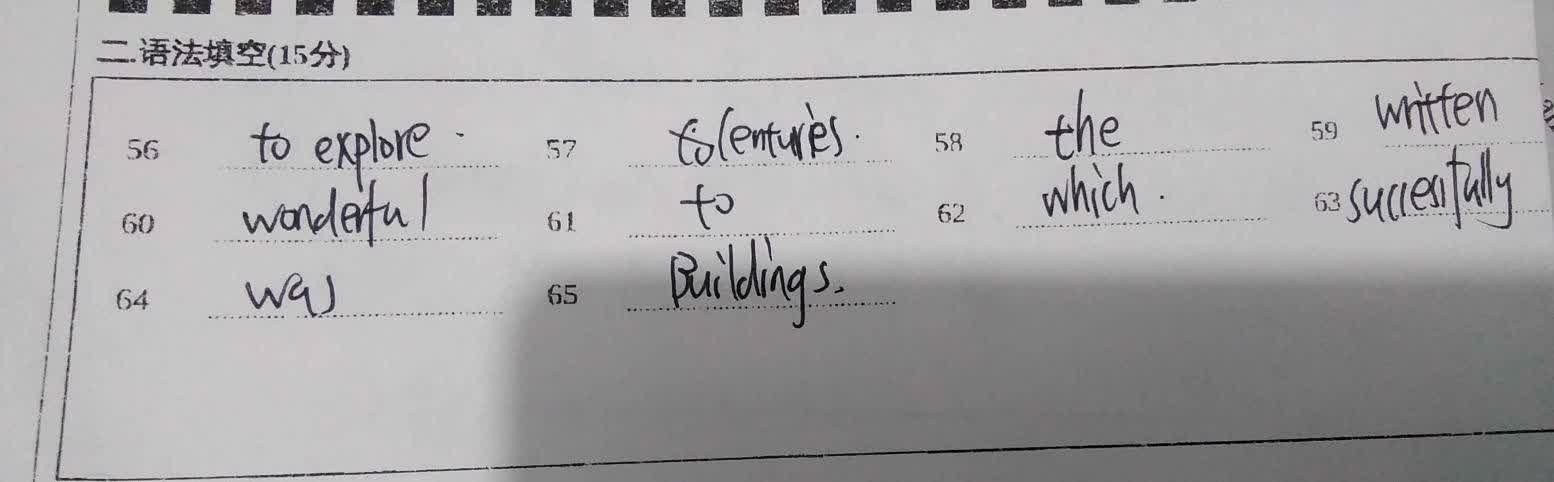 二.语法填空(15分)
56 to explore. 57 centuries. 58 the 59 written
60 wonderful 61 to 62 which. 63 successfully
64 was 65 Buildings.